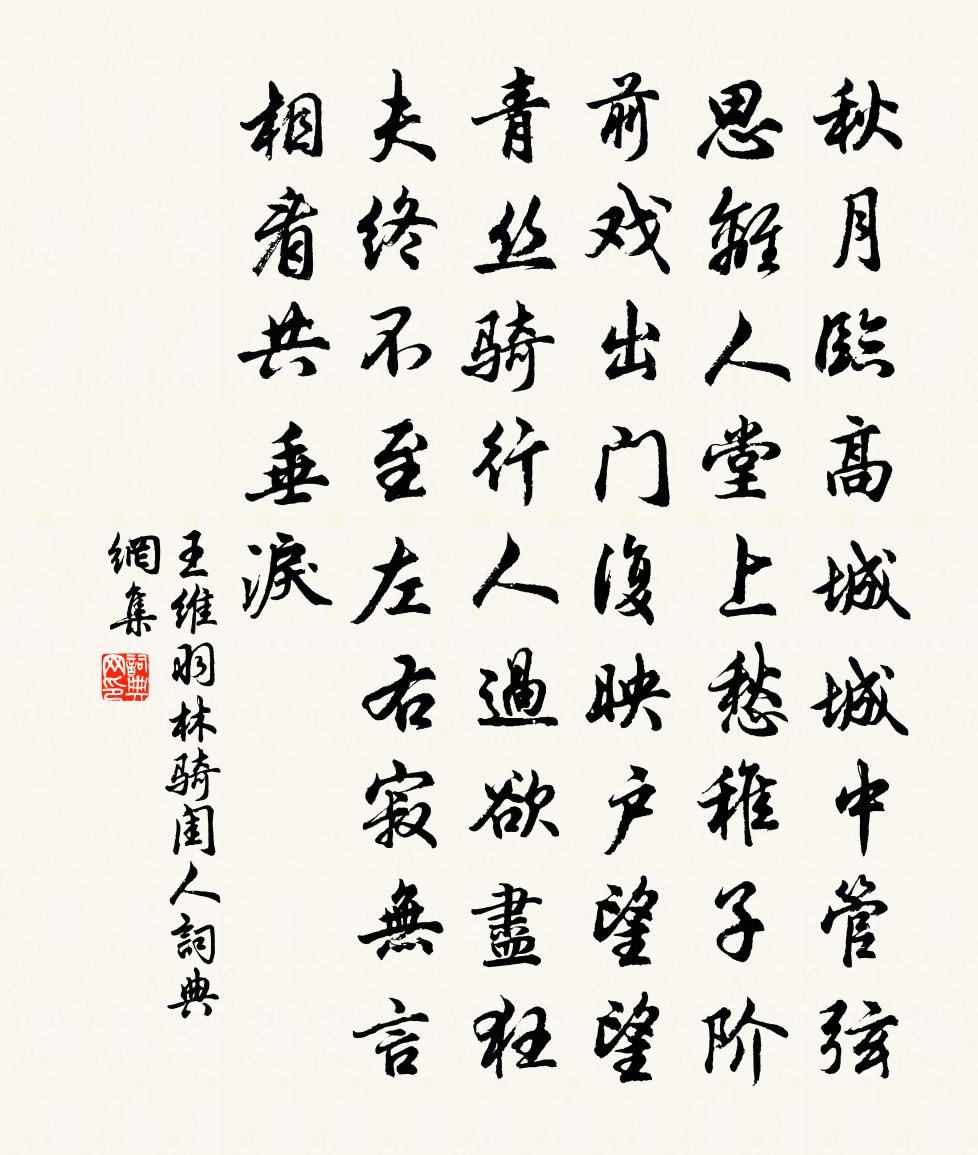 秋月臨高城城中管弦
思離人堂上愁稚子阶
前戏出门復映户望望
青丝骑行人過欲盡狂
夫终不至左右寂無言
相看共垂淚
王維羽林骑閨人詞典
網集
詞典網印